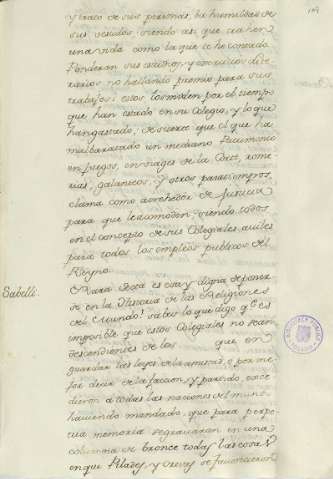 y trato de sus personas, la humildad de
sus vestidos, siendo asi que trahen
una vida como la que se ha contado.
Ponderan sus estudios, y exercicios lite-
rarios no hallando premio para sus
trabajos; estos los miden por el tiempo
que han estado en su Colegio, y lo que
han gastado, de suerte que el que ha
malbaratado un mediano Patrimonio
en juegos, en viages de la Corte, rome-
rias, galanteos, y otros pasatiempos,
clama como acrehedor de Justicia
para que le acomoden, siendo todos
en el concepto de sus Colegiales utiles
para todos los empleos publicos del
Reyno.
Rara cosa es esta y digna de poner-
se en la Historia de las Religiones
del Mundo: sabes lo que digo q.e es
imposible que estos Colegiales no sean
descendientes de los que en
guardar las leyes de la amistad, o por me-
jor decir de la faccion, y partido exce-
dieron a todas las naciones del mundo
haviendo mandado, que para perpe-
tua memoria se gravaran en una
columna de bronce todas las cosas
en que Pilades, y Orestes se favorecieron